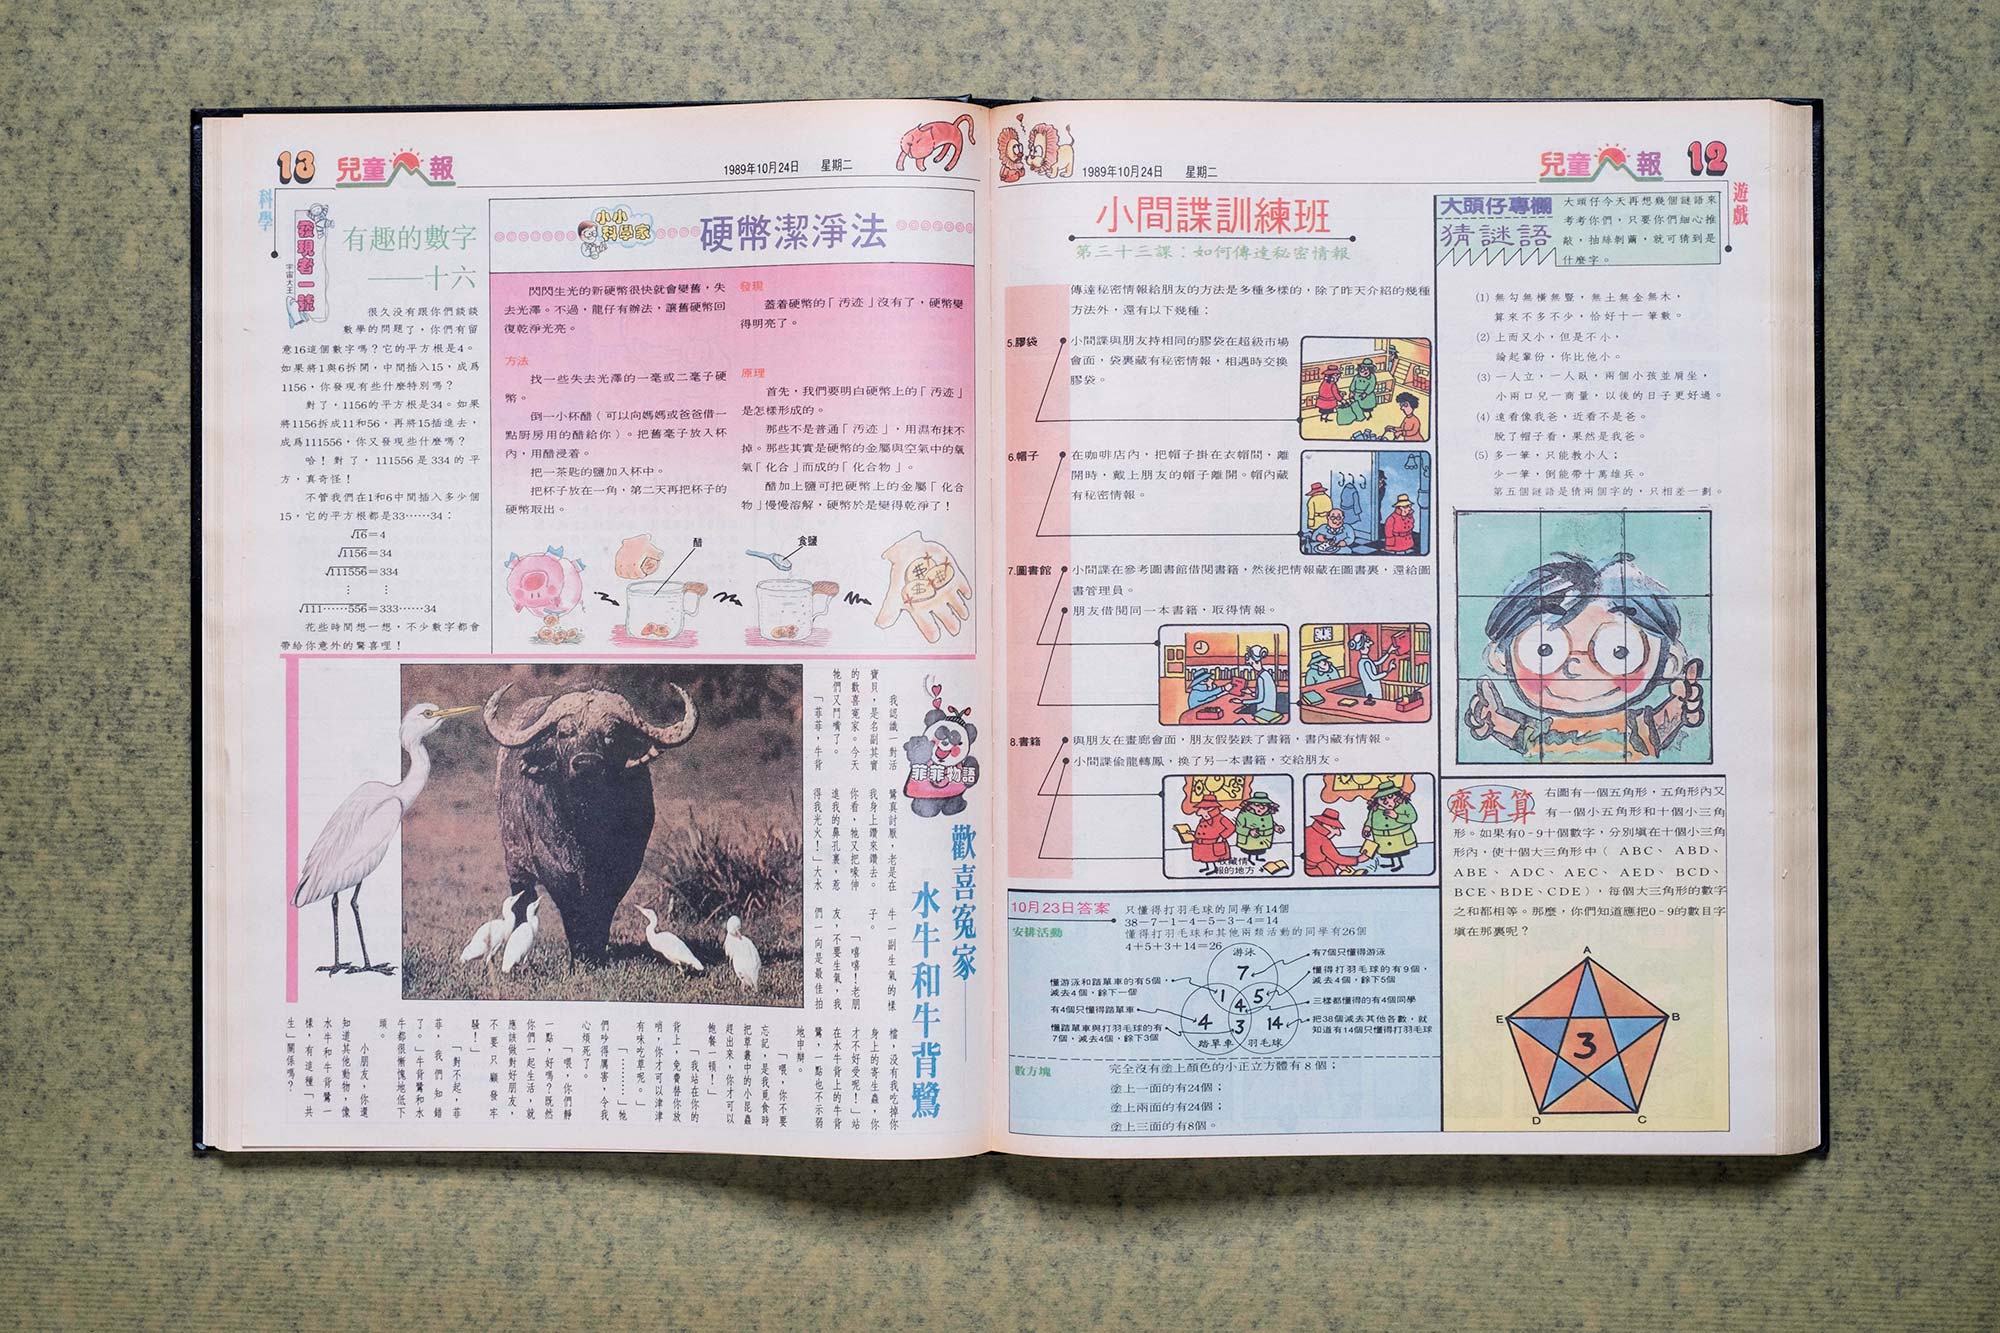 13
兒童報
1989年10月24日 星期二
科學
發現者一號
宇宙大王
有趣的數字
——十六
很久没有跟你們談談
數學的問題了，你們有留
意16這個數字嗎？它的平方根是4。
如果將1與6拆開，中間插入15，成爲
1156，你發現有些什麼特別嗎？
對了，1156的平方根是34。如果
將1156拆成11和56，再將15插進去，
成爲111556，你又發現些什麼嗎？
哈！對了，111556是334的平
方，真奇怪！
不管我們在1和6中間插入多少個
15，它的平方根都是33……34：
√16=4
√1156=34
√111556=334
⋮ ⋮
√111……556=333……34
花些時間想一想，不少數字都會
帶給你意外的驚喜哩！
小小科學家
硬幣潔淨法
閃閃生光的新硬幣很快就會變舊，失
去光澤。不過，龍仔有辦法，讓舊硬幣回
復乾淨光亮。
方法
找一些失去光澤的一毫或二毫子硬
幣。
倒一小杯醋（可以向媽媽或爸爸借一
點厨房用的醋給你）。把舊毫子放入杯
內，用醋浸着。
把一茶匙的鹽加入杯中。
把杯子放在一角，第二天再把杯子的
硬幣取出。
發現
蓋着硬幣的「汚迹」沒有了，硬幣變
得明亮了。
原理
首先，我們要明白硬幣上的「汚迹」
是怎樣形成的。
那些不是普通「汚迹」，用濕布抹不
掉。那些其實是硬幣的金屬與空氣中的氧
氣「化合」而成的「化合物」。
醋加上鹽可把硬幣上的金屬「化合
物」慢慢溶解，硬幣於是變得乾淨了！
醋
食鹽
菲菲物語
歡喜寃家——
水牛和牛背鷺
我認識一對活
寶貝，是名副其實
的歡喜寃家。今天
牠們又鬥嘴了。
「菲菲，牛背
鷺真討厭，老是在
我身上鑽來鑽去。
你看，牠又把喙伸
進我的鼻孔裏，惹
得我光火！」大水
牛一副生氣的樣
子。
「嘻嘻！老朋
友，不要生氣，我
們一向是最佳拍
檔，沒有我吃掉你
身上的寄生蟲，你
才不好受呢！」站
在水牛背上的牛背
鷺，一點也不示弱
地申辯。
「喂，你不要
忘記，是我覓食時
把草叢中的小昆蟲
趕出來，你才可以
飽餐一頓！」
「我站在你的
背上，免費替你放
哨，你才可以津津
有味吃草呢。」
「………」牠
們吵得厲害，令我
心煩死了。
「喂，你們靜
一點，好嗎？既然
你們一起生活，就
應該做對好朋友，
不要只顧發牢
騷！」
「對不起，菲
菲，我們知錯
了。」牛背鷺和水
牛都很慚愧地低下
頭。
小朋友，你還
知道其他動物，像
水牛和牛背鷺一
樣，有這種「共
生」關係嗎？
1989年10月24日 星期二
兒童報
12
遊戲
小間諜訓練班
第三十三課：如何傳達秘密情報
傳達秘密情報給朋友的方法是多種多樣的，除了昨天介紹的幾種
方法外，還有以下幾種：
5.膠袋
小間諜與朋友持相同的膠袋在超級市場
會面，袋裏藏有秘密情報，相遇時交換
膠袋。
6.帽子
在咖啡店內，把帽子掛在衣帽間，離
開時，戴上朋友的帽子離開。帽內藏
有秘密情報。
7.圖書館
小間諜在參考圖書館借閱書籍，然後把情報藏在圖書裏，還給圖
書管理員。
朋友借閱同一本書籍，取得情報。
8.書籍
與朋友在畫廊會面，朋友假裝跌了書籍，書內藏有情報。
小間諜偷龍轉鳳，換了另一本書籍，交給朋友。
收藏情
報的地方
10月23日答案
安排活動
只懂得打羽毛球的同學有14個
38－7－1－4－5－3－4＝14
懂得打羽毛球和其他兩類活動的同學有26個
4＋5＋3＋14＝26
游泳
7
1
5
4
4
3
14
踏單車
羽毛球
懂游泳和踏單車的有5個，
減去4個，餘下一個
有4個只懂得踏單車
懂踏單車與打羽毛球的有
7個，減去4個，餘下3個
有7個只懂得游泳
懂得打羽毛球的有9個，
減去4個，餘下5個
三樣都懂得的有4個同學
把38個減去其他各數，就
知道有14個只懂得打羽毛球
數方塊
完全沒有塗上顏色的小正立方體有8個；
塗上一面的有24個；
塗上兩面的有24個；
塗上三面的有8個。
大頭仔專欄
猜謎語
大頭仔今天再想幾個謎語來
考考你們，只要你們細心推
敲，抽絲剝繭，就可猜到是
什麼字。
(1) 無勾無橫無豎，無土無金無木，
算來不多不少，恰好十一筆數。
(2) 上面又小，但是不小，
論起輩份，你比他小。
(3) 一人立，一人臥，兩個小孩並肩坐，
小兩口兒一商量，以後的日子更好過。
(4) 遠看像我爸，近看不是爸。
脫了帽子看，果然是我爸。
(5) 多一筆，只能教小人；
少一筆，倒能帶十萬雄兵。
第五個謎語是猜兩個字的，只相差一劃。
齊齊算
右圖有一個五角形，五角形內又
有一個小五角形和十個小三角
形。如果有0－9十個數字，分別填在十個小三角
形內，使十個大三角形中（ABC、ABD、
ABE、ADC、AEC、AED、BCD、
BCE、BDE、CDE），每個大三角形的數字
之和都相等。那麼，你們知道應把0－9的數目字
填在那裏呢？
A
E
B
3
D
C